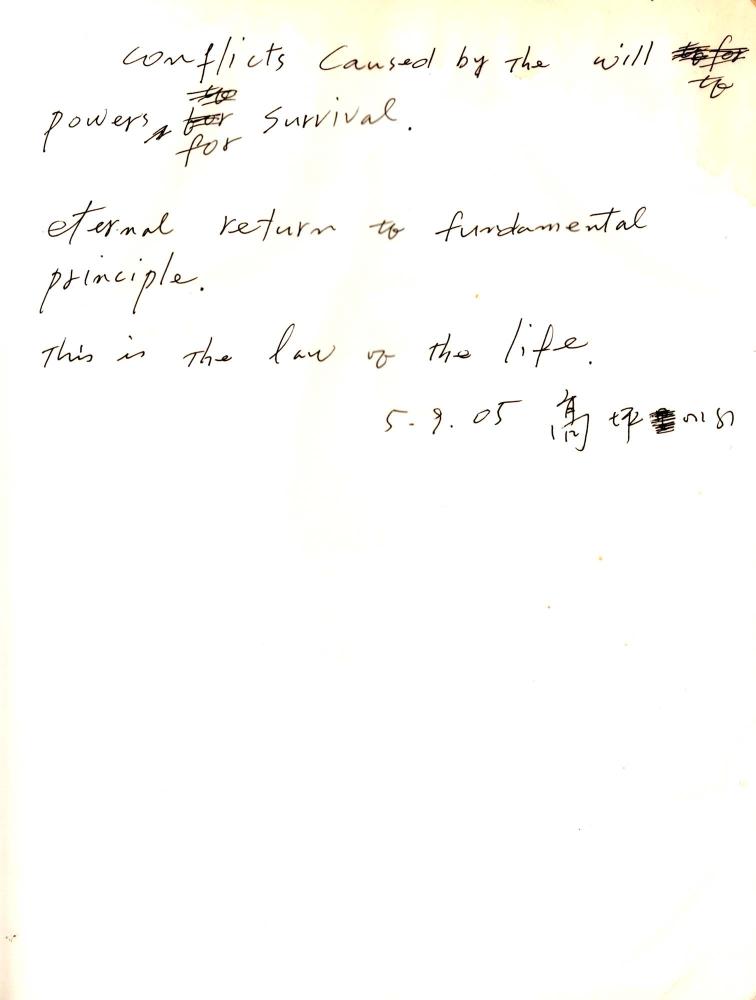 conflicts caused by the will to
powers, for survival.
eternal return to fundamental
principle.
This is the law of the life.
5. 9. 05 高坪에서